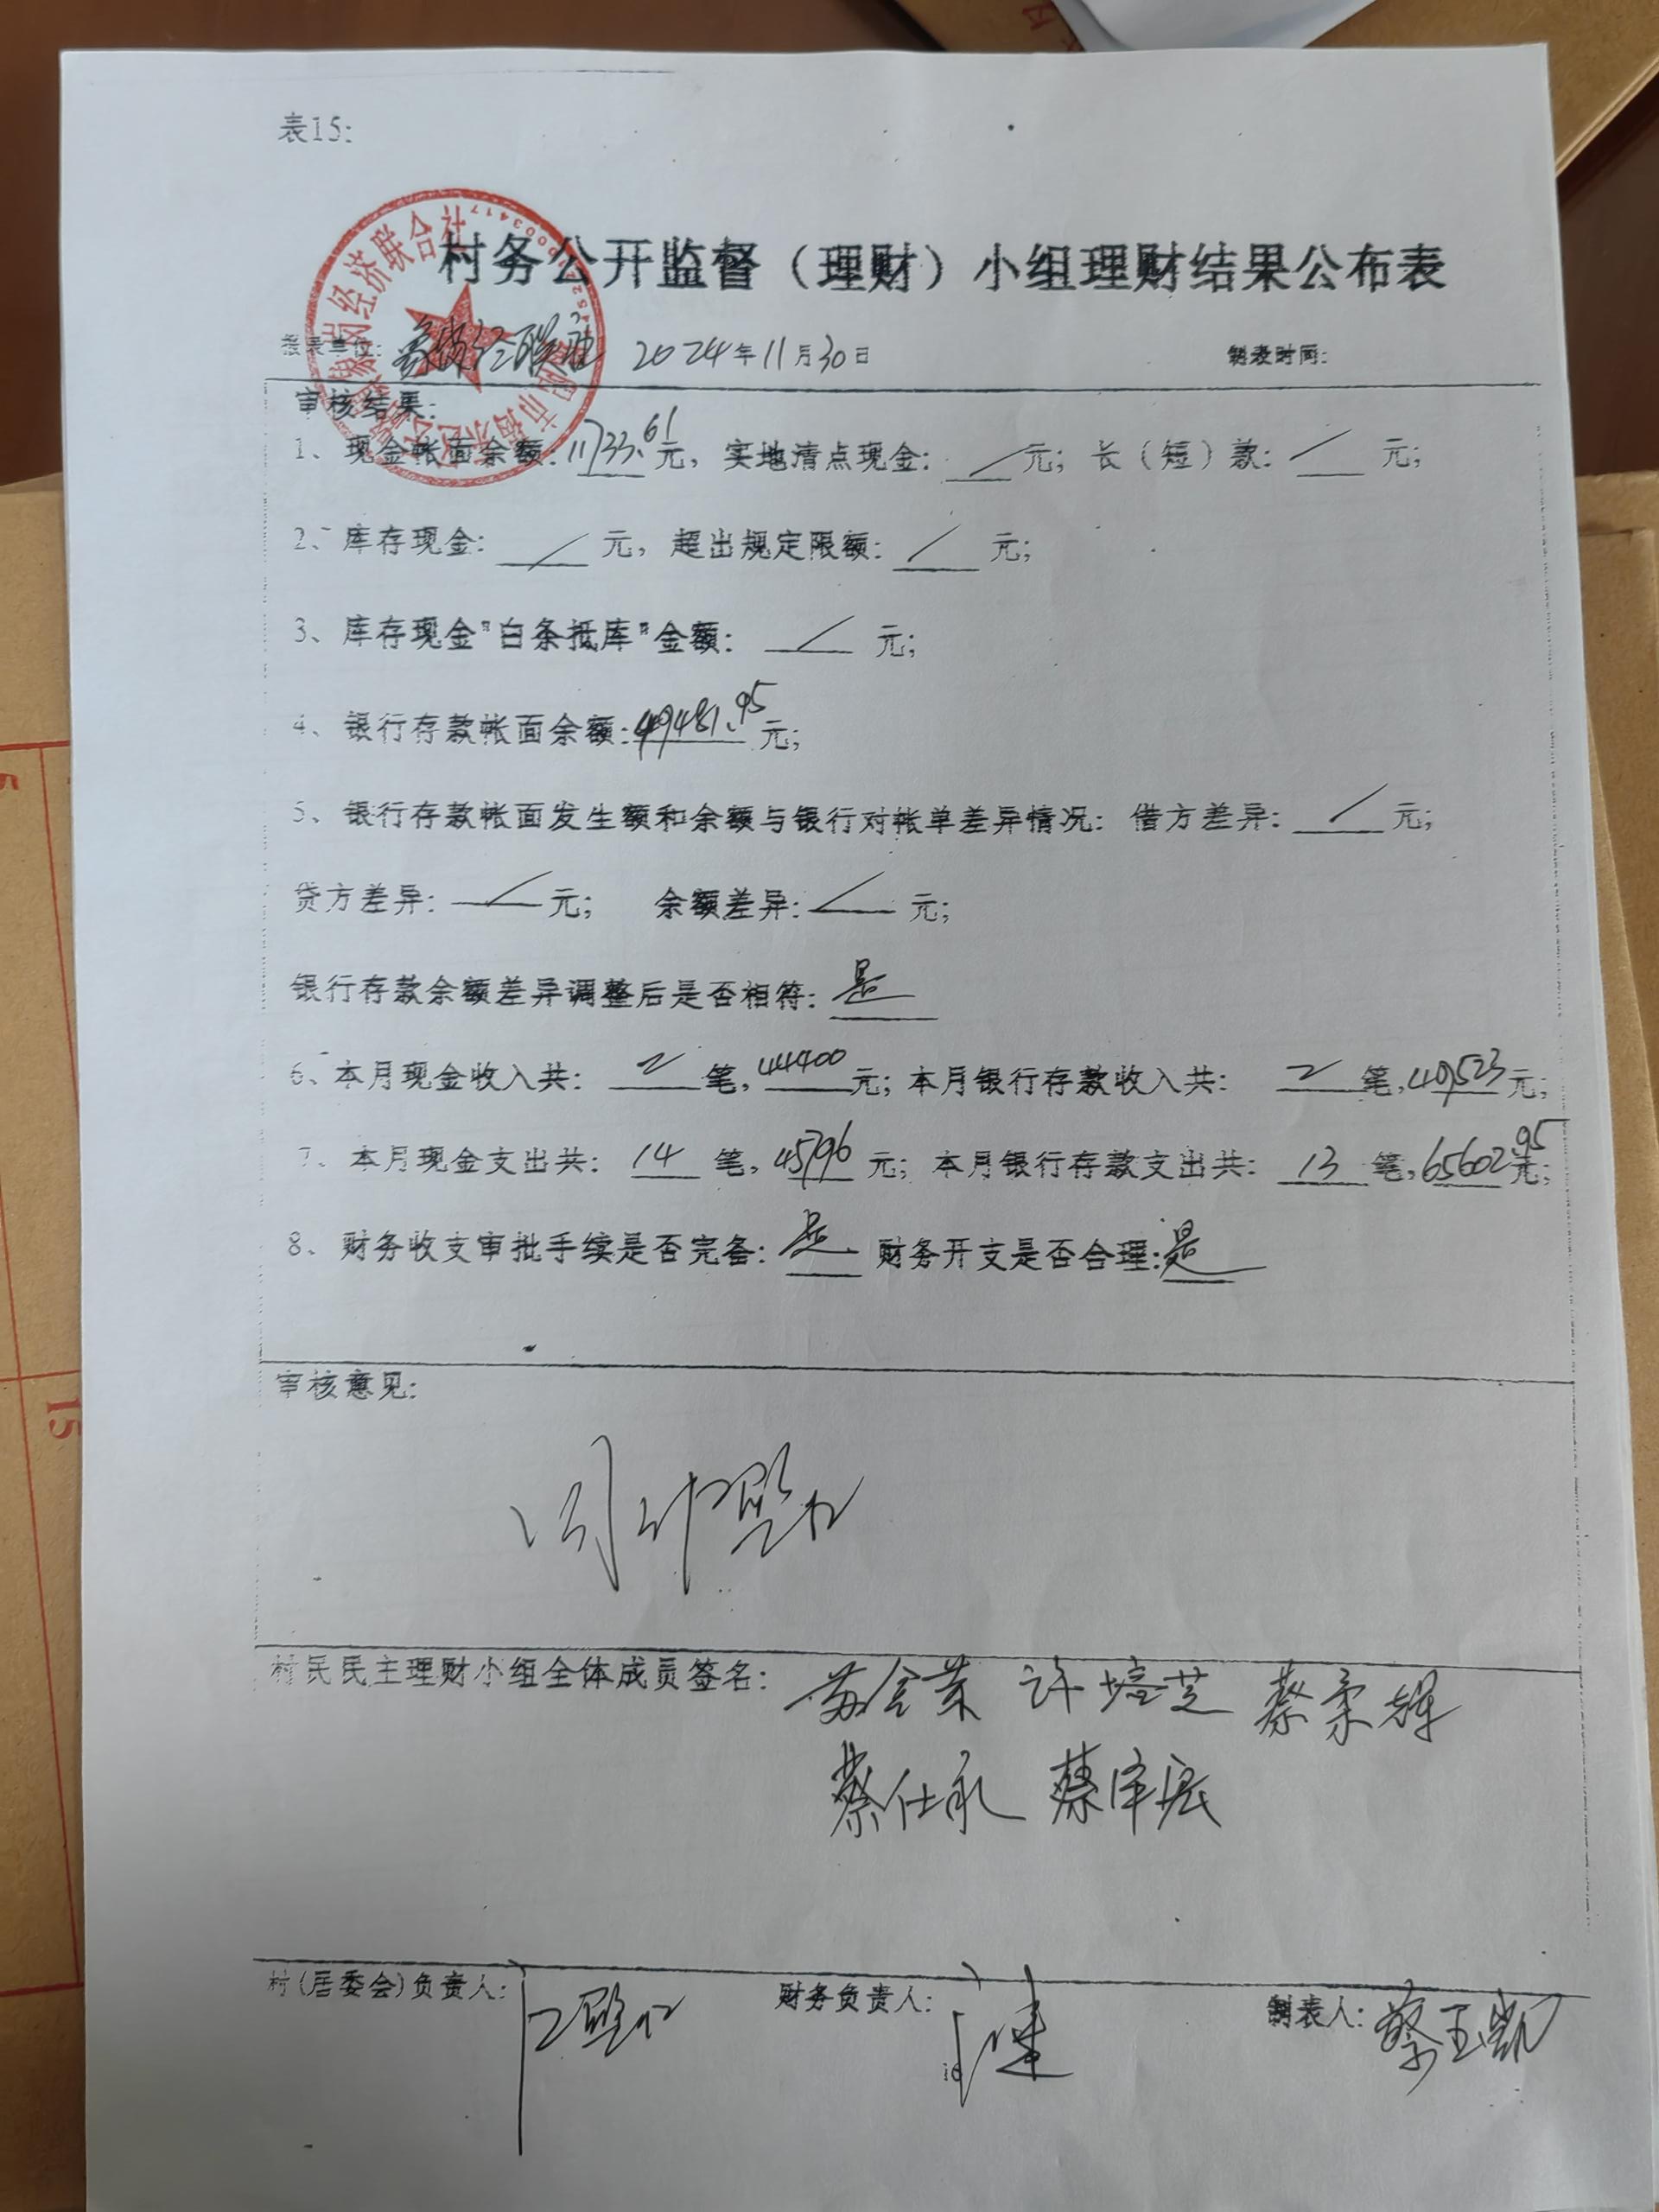 表15:
村务公开监督（理财）小组理财结果公布表
填表单位: 2024年11月30日 制表时间:
审核结果:
1、现金帐面余额:11733.61元，实地清点现金: / 元；长（短）款: / 元;
2、库存现金: / 元，超出规定限额: / 元;
3、库存现金"白条抵库"金额: / 元;
4、银行存款帐面余额:49481.95元;
5、银行存款帐面发生额和余额与银行对帐单差异情况: 借方差异: / 元;
贷方差异: / 元; 余额差异: / 元;
银行存款余额差异调整后是否相符: 是
6、本月现金收入共: 2 笔, 44400 元; 本月银行存款收入共: 2 笔, 40523 元;
7、本月现金支出共: 14 笔, 45796 元; 本月银行存款支出共: 13 笔, 65602.95元;
8、财务收支审批手续是否完备: 是 财务开支是否合理: 是
审核意见:
村民民主理财小组全体成员签名: 许培芝 蔡柔辉
蔡仕承 蔡泽宏
村(居委会)负责人: 财务负责人: 制表人: 蔡玉凯